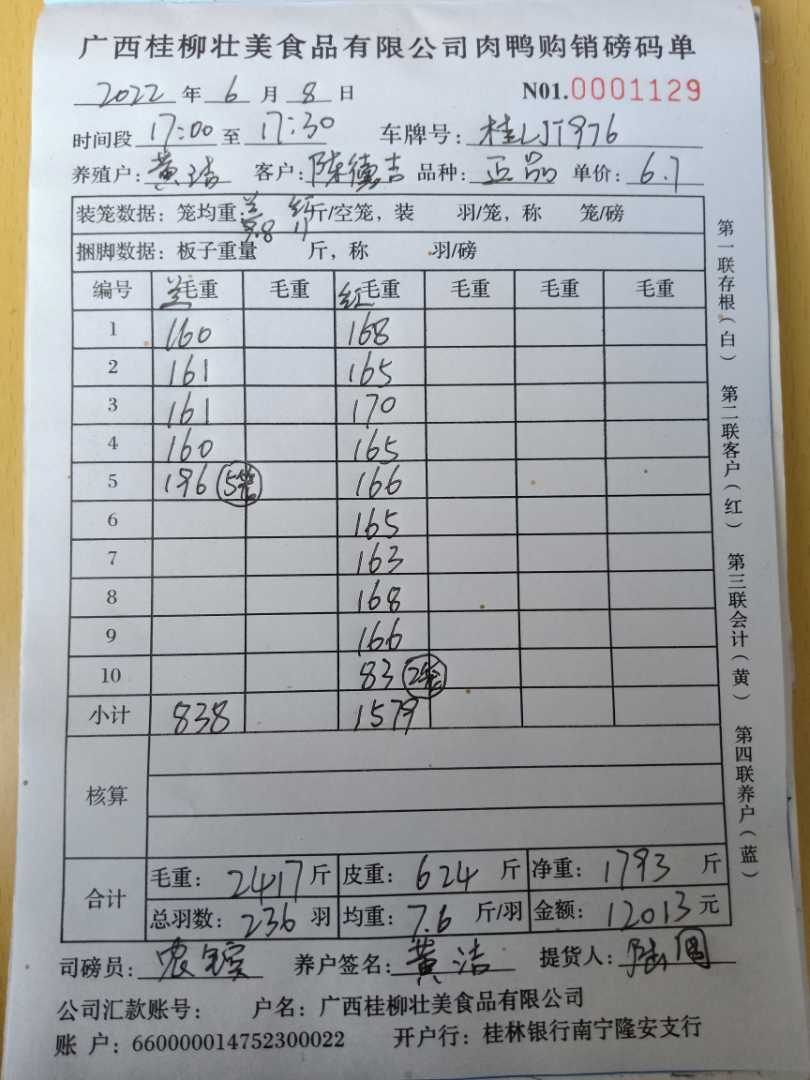 广西桂柳壮美食品有限公司肉鸭购销磅码单
2022 年 6 月 8 日 N01.0001129
时间段 17:00 至 17:30 车牌号: 桂LJT976
养殖户: 黄洁 客户: 陈德吉 品种: 正品 单价: 6.7
装笼数据: 笼均重: 兰9.8 红11 斤/空笼, 装 羽/笼, 称 笼/磅
捆脚数据: 板子重量 斤, 称 羽/磅
编号 兰毛重 毛重 红毛重 毛重 毛重 毛重
1 160 168
2 161 165
3 161 170
4 160 165
5 196 5笼 166
6 165
7 163
8 168
9 166
10 83 2笼
小计 838 1579
核算
合计 毛重: 2417 斤 皮重: 624 斤 净重: 1793 斤
总羽数: 236 羽 均重: 7.6 斤/羽 金额: 12013 元
司磅员: 农 养户签名: 黄洁 提货人: 陆
公司汇款账号: 户名: 广西桂柳壮美食品有限公司
账 户: 660000014752300022 开户行: 桂林银行南宁隆安支行
第一联存根(白) 第二联客户(红) 第三联会计(黄) 第四联养户(蓝)